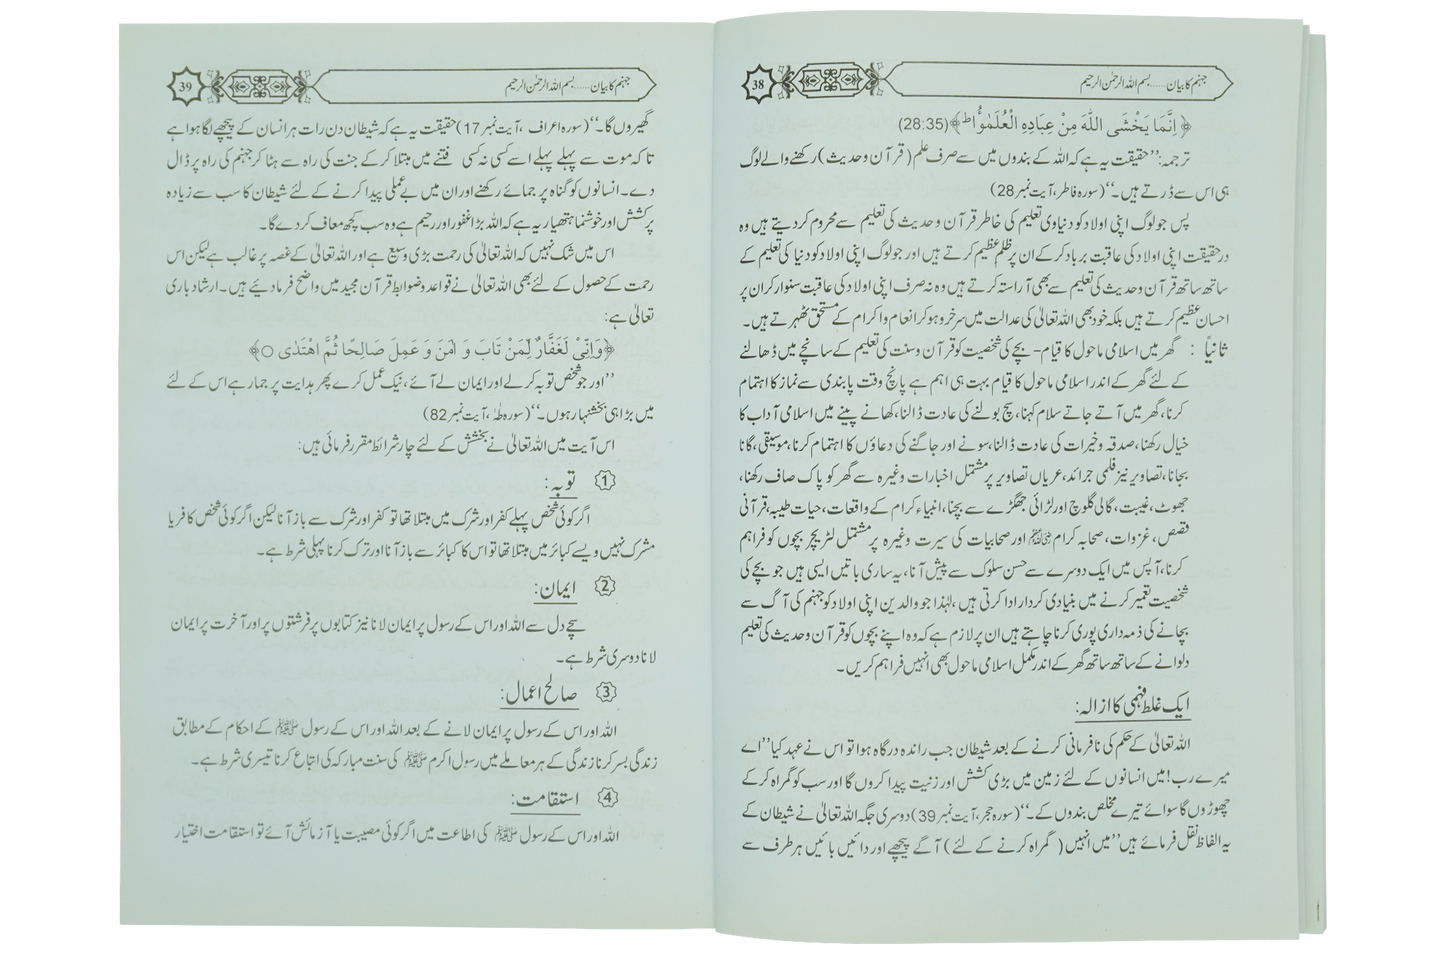 جہنم کا بیان......بسم اللہ الرحمٰن الرحیم
38
﴿ اِنَّمَا یَخْشَی اللّٰہَ مِنْ عِبَادِہِ الْعُلَمٰؤُا ط﴾(28:35)
ترجمہ:’’حقیقت یہ ہے کہ اللہ کے بندوں میں سے صرف علم (قرآن وحدیث) رکھنے والے لوگ
ہی اس سے ڈرتے ہیں۔‘‘ (سورہ فاطر، آیت نمبر 28)
پس جو لوگ اپنی اولاد کو دنیاوی تعلیم کی خاطر قرآن وحدیث کی تعلیم سے محروم کردیتے ہیں وہ
درحقیقت اپنی اولاد کی عاقبت برباد کرکے ان پر ظلم عظیم کرتے ہیں اور جو لوگ اپنی اولاد کو دنیا کی تعلیم کے
ساتھ ساتھ قرآن وحدیث کی تعلیم سے بھی آراستہ کرتے ہیں وہ نہ صرف اپنی اولاد کی عاقبت سنوار کر ان پر
احسان عظیم کرتے ہیں بلکہ خود بھی اللہ تعالیٰ کی عدالت میں سرخرو ہوکر انعام واکرام کے مستحق ٹھہرتے ہیں۔
ثانیاً : گھر میں اسلامی ماحول کا قیام- بچے کی شخصیت کو قرآن وسنت کی تعلیم کے سانچے میں ڈھالنے
کے لئے گھر کے اندر اسلامی ماحول کا قیام بہت ہی اہم ہے پانچ وقت پابندی سے نماز کا اہتمام
کرنا، گھر میں آتے جاتے سلام کہنا، سچ بولنے کی عادت ڈالنا، کھانے پینے میں اسلامی آداب کا
خیال رکھنا، صدقہ وخیرات کی عادت ڈالنا، سونے اور جاگنے کی دعاؤں کا اہتمام کرنا، موسیقی، گانا
بجانا، تصاویر نیز فلمی جرائد، عریاں تصاویر پر مشتمل اخبارات وغیرہ سے گھر کو پاک صاف رکھنا،
جھوٹ، غیبت، گالی گلوچ اور لڑائی جھگڑے سے بچنا، انبیاء کرام کے واقعات، حیات طیبہ، قرآنی
قصص، غزوات، صحابہ کرام ﷺ اور صحابیات کی سیرت وغیرہ پر مشتمل لٹریچر بچوں کو فراہم
کرنا، آپس میں ایک دوسرے سے حسن سلوک سے پیش آنا، یہ ساری باتیں ایسی ہیں جو بچے کی
شخصیت تعمیر کرنے میں بنیادی کردار ادا کرتی ہیں، لہٰذا جو والدین اپنی اولاد کو جہنم کی آگ سے
بچانے کی ذمہ داری پوری کرنا چاہتے ہیں ان پر لازم ہے کہ وہ اپنے بچوں کو قرآن وحدیث کی تعلیم
دلوانے کے ساتھ ساتھ گھر کے اندر مکمل اسلامی ماحول بھی انہیں فراہم کریں۔
ایک غلط فہمی کا ازالہ:
اللہ تعالیٰ کے حکم کی نافرمانی کرنے کے بعد شیطان جب راندہ درگاہ ہوا تو اس نے عہد کیا’’اے
میرے رب! میں انسانوں کے لئے زمین میں بڑی کشش اور زینت پیدا کروں گا اور سب کو گمراہ کرکے
چھوڑوں گا سوائے تیرے مخلص بندوں کے۔‘‘ (سورہ حجر، آیت نمبر 39) دوسری جگہ اللہ تعالیٰ نے شیطان کے
یہ الفاظ نقل فرمائے ہیں’’میں انہیں (گمراہ کرنے کے لئے) آگے پیچھے اور دائیں بائیں ہر طرف سے
جہنم کا بیان......بسم اللہ الرحمٰن الرحیم
39
گھیروں گا۔‘‘ (سورہ اعراف، آیت نمبر 17) حقیقت یہ ہے کہ شیطان دن رات ہر انسان کے پیچھے لگا ہوا ہے
تاکہ موت سے پہلے پہلے اسے کسی نہ کسی فتنے میں مبتلا کرکے جنت کی راہ سے ہٹا کر جہنم کی راہ پر ڈال
دے۔ انسانوں کو گناہ پر جمائے رکھنے اور ان میں بے عملی پیدا کرنے کے لئے شیطان کا سب سے زیادہ
پرکشش اور خوشنما ہتھیار یہ ہے کہ اللہ بڑا غفور اور رحیم ہے وہ سب کچھ معاف کردے گا۔
اس میں شک نہیں کہ اللہ تعالیٰ کی رحمت بڑی وسیع ہے اور اللہ تعالیٰ کے غصہ پر غالب ہے لیکن اس
رحمت کے حصول کے لئے بھی اللہ تعالیٰ نے قواعد وضوابط قرآن مجید میں واضح فرمادیئے ہیں۔ ارشاد باری
تعالیٰ ہے:
﴿وَاِنِّیْ لَغَفَّارٌ لِّمَنْ تَابَ وَ اٰمَنَ وَ عَمِلَ صَالِحًا ثُمَّ اھْتَدٰی ○﴾
’’اور جو شخص توبہ کرلے اور ایمان لے آئے، نیک عمل کرے پھر ہدایت پر جما رہے اس کے لئے
میں بڑا ہی بخشنہار ہوں۔‘‘ (سورہ طٰہٰ، آیت نمبر 82)
اس آیت میں اللہ تعالیٰ نے بخشش کے لئے چار شرائط مقرر فرمائی ہیں:
1 توبہ:
اگر کوئی شخص پہلے کفر اور شرک میں مبتلا تھا تو کفر اور شرک سے باز آنا لیکن اگر کوئی شخص کافر یا
مشرک نہیں ویسے کبائر میں مبتلا تھا تو اس کا کبائر سے باز آنا اور ترک کرنا پہلی شرط ہے۔
2 ایمان:
سچے دل سے اللہ اور اس کے رسول پر ایمان لانا نیز کتابوں پر فرشتوں پر اور آخرت پر ایمان
لانا دوسری شرط ہے۔
3 صالح اعمال:
اللہ اور اس کے رسول پر ایمان لانے کے بعد اللہ اور اس کے رسول ﷺ کے احکام کے مطابق
زندگی بسر کرنا زندگی کے ہر معاملے میں رسول اکرم ﷺ کی سنت مبارکہ کی اتباع کرنا تیسری شرط ہے۔
4 استقامت:
اللہ اور اس کے رسول ﷺ کی اطاعت میں اگر کوئی مصیبت یا آزمائش آئے تو استقامت اختیار